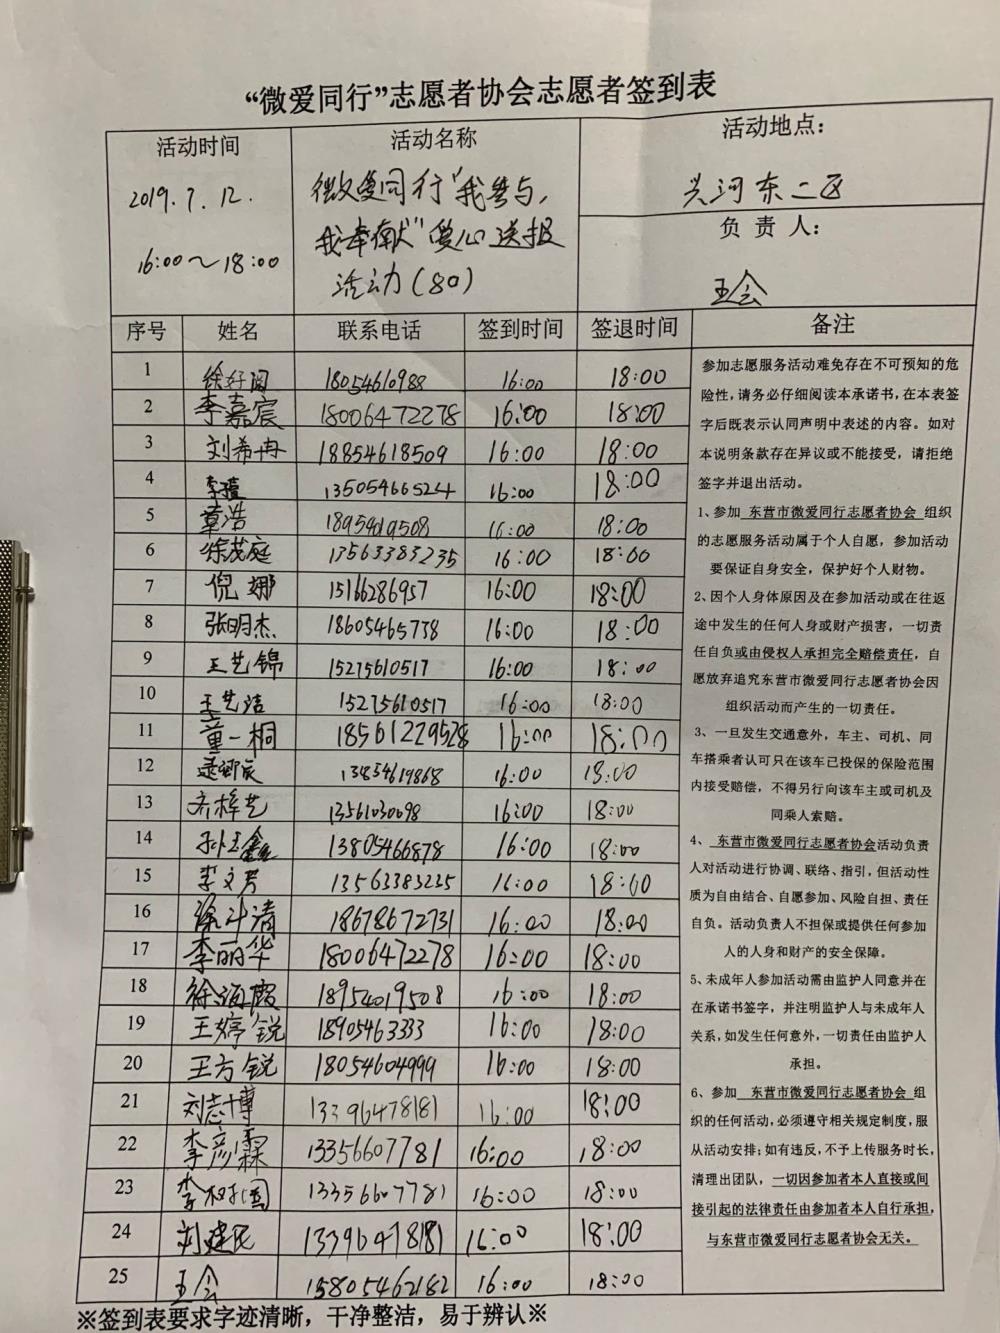 “微爱同行”志愿者协会志愿者签到表
活动时间
2019.7.12.
16:00～18:00
活动名称
微爱同行“我参与，
我奉献”爱心送报
活动(80)
活动地点：
兴河东二区
负 责 人：
王会
序号 姓名 联系电话 签到时间 签退时间 备注
1 徐好阅 18054610988 16:00 18:00
2 李嘉宸 18006472278 16:00 18:00
3 刘希冉 18854618509 16:00 18:00
4 李瑄 13505466524 16:00 18:00
5 章浩 18954019508 16:00 18:00
6 徐茂庭 13563383235 16:00 18:00
7 倪娜 15166286957 16:00 18:00
8 张明杰 18605465738 16:00 18:00
9 王艺锦 15275610517 16:00 18:00
10 王艺洁 15275610517 16:00 18:00
11 董一桐 18561229528 16:00 18:00
12 13854619868 16:00 18:00
13 齐梓艺 13561030098 16:00 18:00
14 孙钰鑫 13805466878 16:00 18:00
15 李文芳 13563383235 16:00 18:00
16 徐斗清 18678672731 16:00 18:00
17 李丽华 18006472278 16:00 18:00
18 徐海霞 18954019508 16:00 18:00
19 王婷锐 18905463333 16:00 18:00
20 王方锐 18054604999 16:00 18:00
21 刘志博 13396478181 16:00 18:00
22 李彦霖 13356607781 16:00 18:00
23 李树国 13356607781 16:00 18:00
24 刘建民 13396478181 16:00 18:00
25 王会 15805462182 16:00 18:00
参加志愿服务活动难免存在不可预知的危
险性，请务必仔细阅读本承诺书，在本表签
字后既表示认同声明中表述的内容。如对
本说明条款存在异议或不能接受，请拒绝
签字并退出活动。
1、参加 东营市微爱同行志愿者协会 组织
的志愿服务活动属于个人自愿，参加活动
要保证自身安全，保护好个人财物。
2、因个人身体原因及在参加活动或在往返
途中发生的任何人身或财产损害，一切责
任自负或由侵权人承担完全赔偿责任，自
愿放弃追究东营市微爱同行志愿者协会因
组织活动而产生的一切责任。
3、一旦发生交通意外，车主、司机、同
车搭乘者认可只在该车已投保的保险范围
内接受赔偿，不得另行向该车主或司机及
同乘人索赔。
4、 东营市微爱同行志愿者协会活动负责
人对活动进行协调、联络、指引，但活动性
质为自由结合、自愿参加、风险自担、责任
自负。活动负责人不担保或提供任何参加
人的人身和财产的安全保障。
5、未成年人参加活动需由监护人同意并在
在承诺书签字，并注明监护人与未成年人
关系，如发生任何意外，一切责任由监护人
承担。
6、参加 东营市微爱同行志愿者协会 组
织的任何活动，必须遵守相关规定制度，服
从活动安排；如有违反，不予上传服务时长，
清理出团队，一切因参加者本人直接或间
接引起的法律责任由参加者本人自行承担，
与东营市微爱同行志愿者协会无关。
※签到表要求字迹清晰，干净整洁，易于辨认※